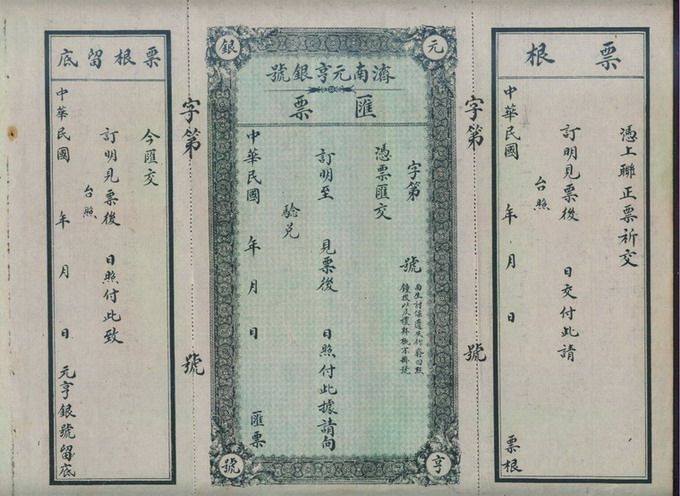 票根
憑上聯正票祈交
訂明見票後 日交付此請
台照
中華民國 年 月 日 票根
字第 號
元
亨
銀
號
濟南元亨銀號
匯票
字第 號
憑票匯交
訂明至 見票後 日照付此據請向
驗兌
中華民國 年 月 日 匯票
字第 號
票根留底
今匯交
訂明見票後 日照付此致
台照
中華民國 年 月 日 元亨銀號留底